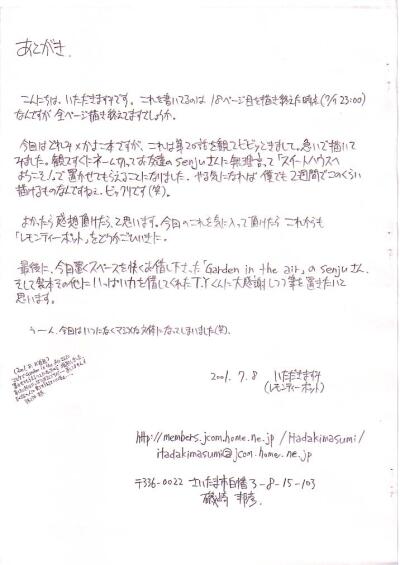 あとがき
こんにちは、いただきますみです。これを書いてるのは 18ページ目を描き終えた時点(7/1 23:00)
なんですが 全ページ描き終えてますでしょうか。
今回はどれみ×かよこ本ですが、これは第20話を観てビビッときまして。急いで描いて
みました。観てすぐにネーム切ってお友達のsenjuさんに無理言って「スイートハウスへ
ようこそ!」で置かせてもらえることになりました。やる気になれば 僕でも2週間でこのくらい
描けるものなんですねぇ。ビックリです(笑)。
よかったら感想頂けたら、と思います。今回のこれを気に入って頂けたら これからも
「レモンティーポット」をどうかごひいきに。
最後に、今回置くスペースを快くお借し下さった「Garden in the air」の senjuさん、
そして製本その他に いっぱい力を借してくれたT.Yくんに大感謝しつつ筆を置きたいと
思います。
うーん、今回はいつになくマジメな文体になってしまいました(笑)。
2001. 7. 8 いただきますみ
(レモンティーポット)
http://members.jcom.home.ne.jp/itadakimasumi/
itadakimasumi@jcom.home.ne.jp
〒336-0022 さいたま市白幡3-8-15-103
磯崎 邦彦